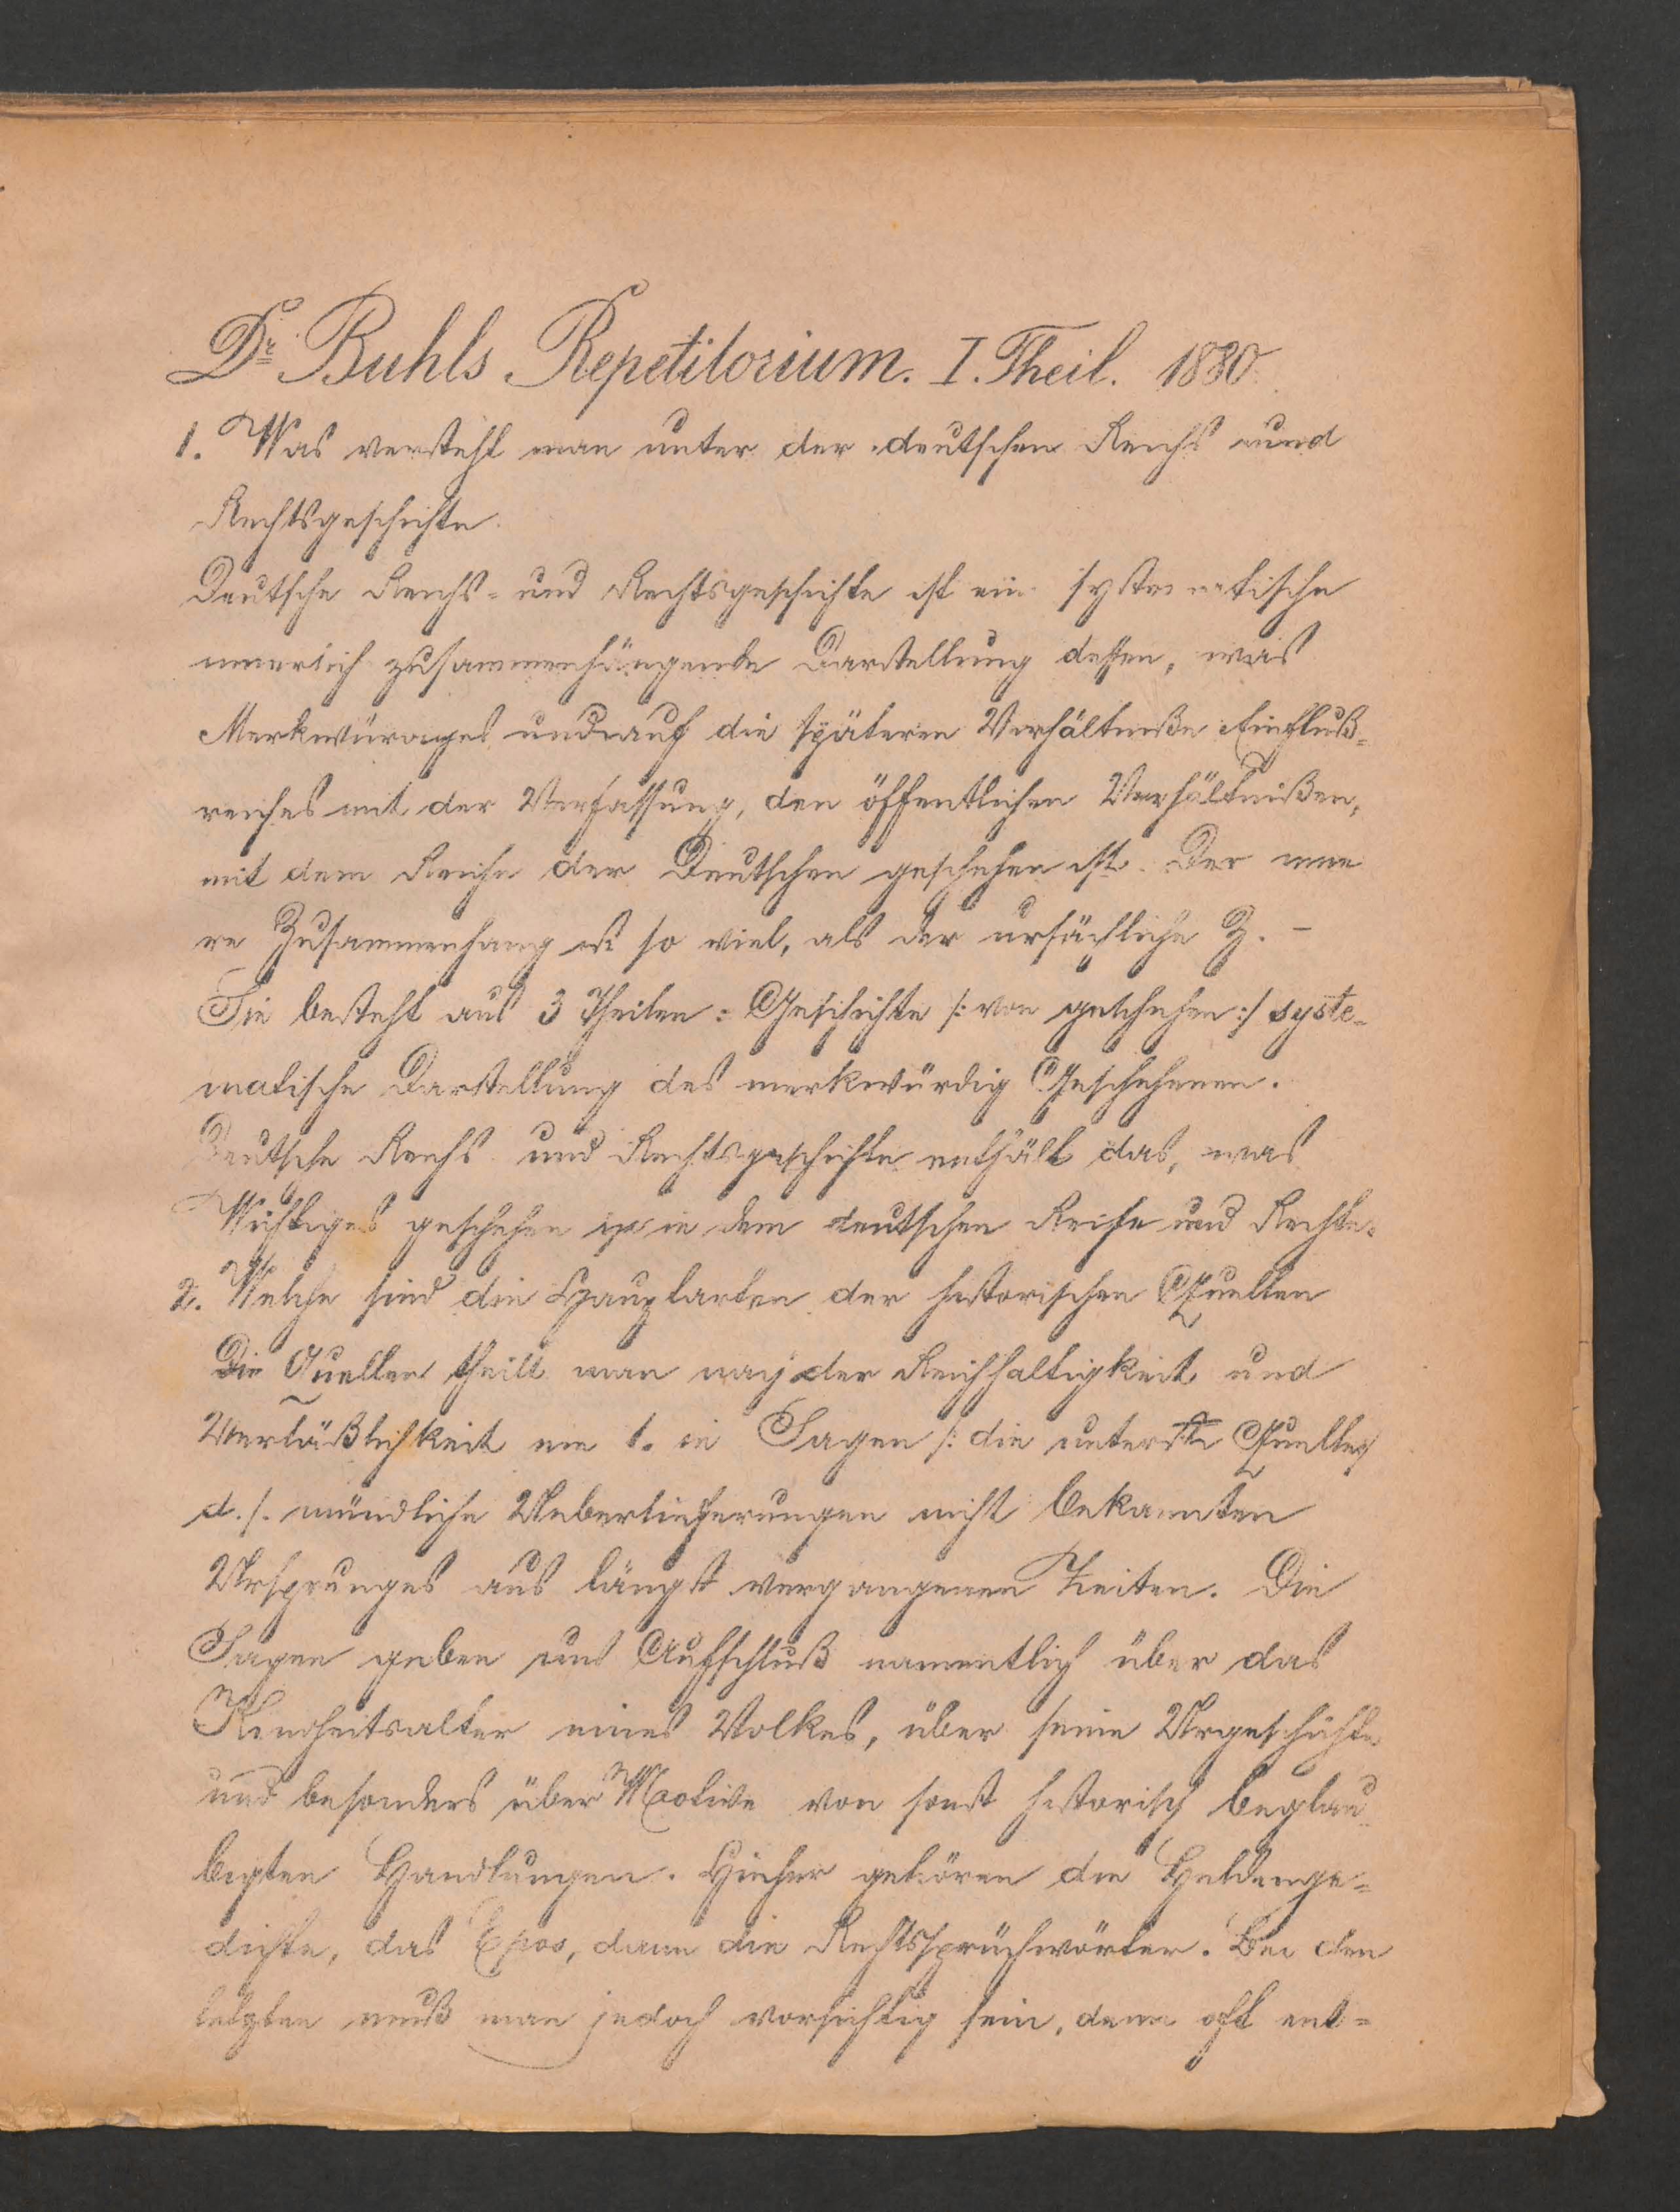 Dr Buhls Repetitorium. I. Theil. 1880
1. Was versteht man unter der deutschen Reichs und
Rechtsgeschichte.
Deutsche Reichs- und Rechtsgeschichte ist ein systematische
innerlich zusammenhängende Darstellung dessen, was
Merkwürdiges und auf die späteren Verhältniße Einfluß-
reiches mit der Verfassung, den öffentlichen Verhältnißen,
mit dem Reiche der Deutschen geschehen ist. Der inne
re Zusammenhang ist so viel, als der ursächliche Z. -
Sie besteht aus 3 Theilen: Geschichte /: von geschehen :/ syste-
matische Darstellung des merkwürdig Geschehenen.
Deutsche Reichs und Rechtsgeschichte enthält das, was
Wichtiges geschehen ist in dem deutschen Reiche und Rechte.
2. Welche sind die Hauptarten der historischen Quellen
Die Quellen theilt man nach der Reichhaltigkeit und
Verläßlichkeit ein 1. in Sagen /: die unterste Quelle/
d. s. mündliche Ueberlieferungen nicht bekannten
Ursprunges aus längst vergangenen Zeiten. Die
Sagen geben uns Aufschluß namentlich über das
Kindheitsalter eines Volkes, über seine Urgeschichte
und besonders über Motive von sonst historisch beglau
bigten Handlungen. Hieher gehören die Heldenge-
dichte, das Epos, dann die Rechtssprüchwörter. Bei den
letzten muß man jedoch vorsichtig sein, denn oft ent-